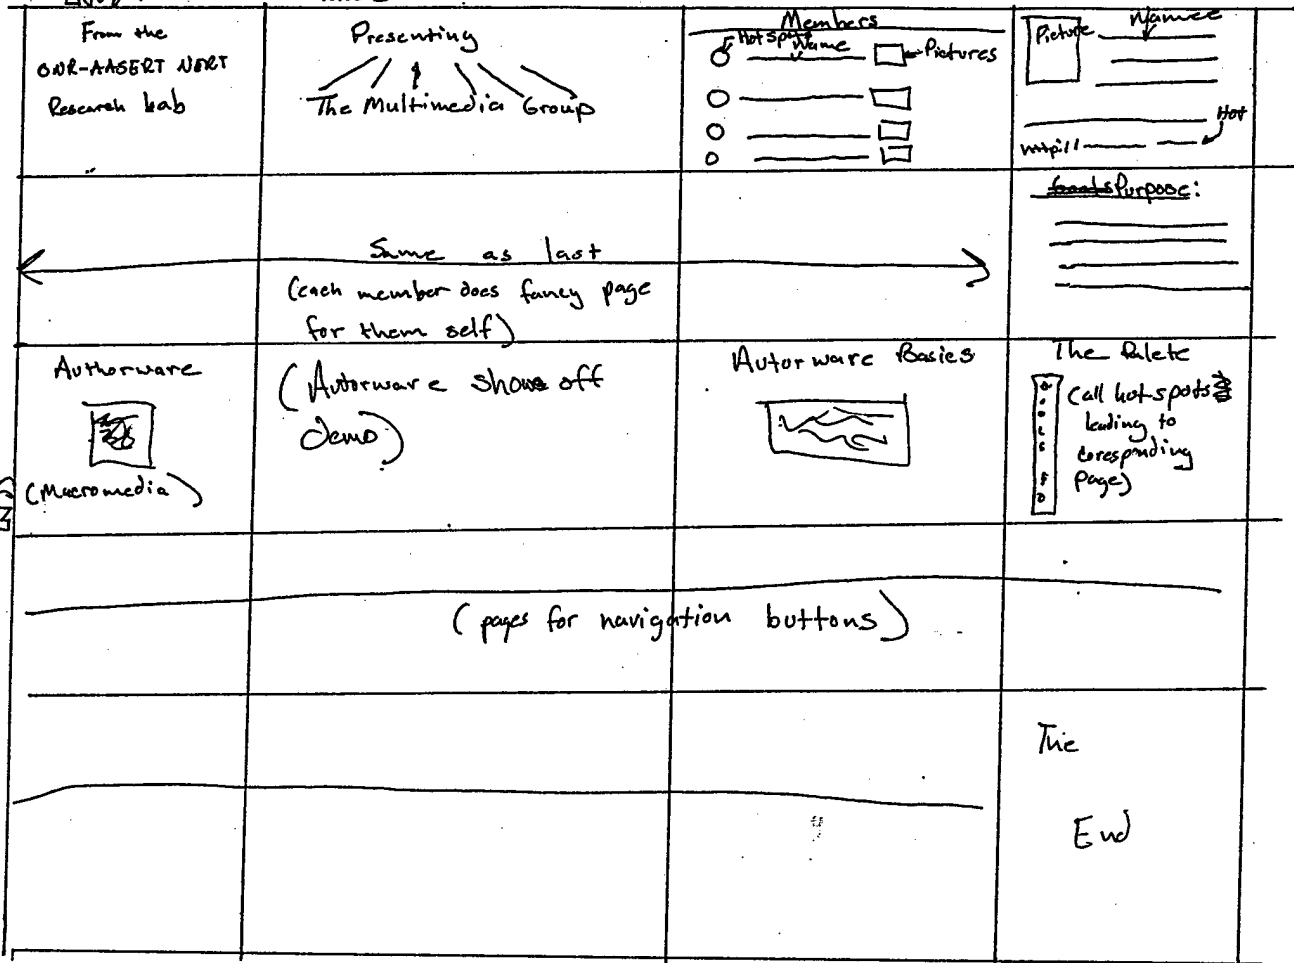 From the
ONR-AASERT NERT
Research Lab
Presenting
The Multimedia Group
Members
Hot spots
Name
Pictures
Picture
Namee
Hot
Purpose:
Same as last
(each member does fancy page
for them self)
Authorware
(Macromedia)
(Autorware show off
demo)
Autorware Basics
The Palete
(all hot spots
leading to
coresponding
page)
(pages for navigation buttons)
The
End